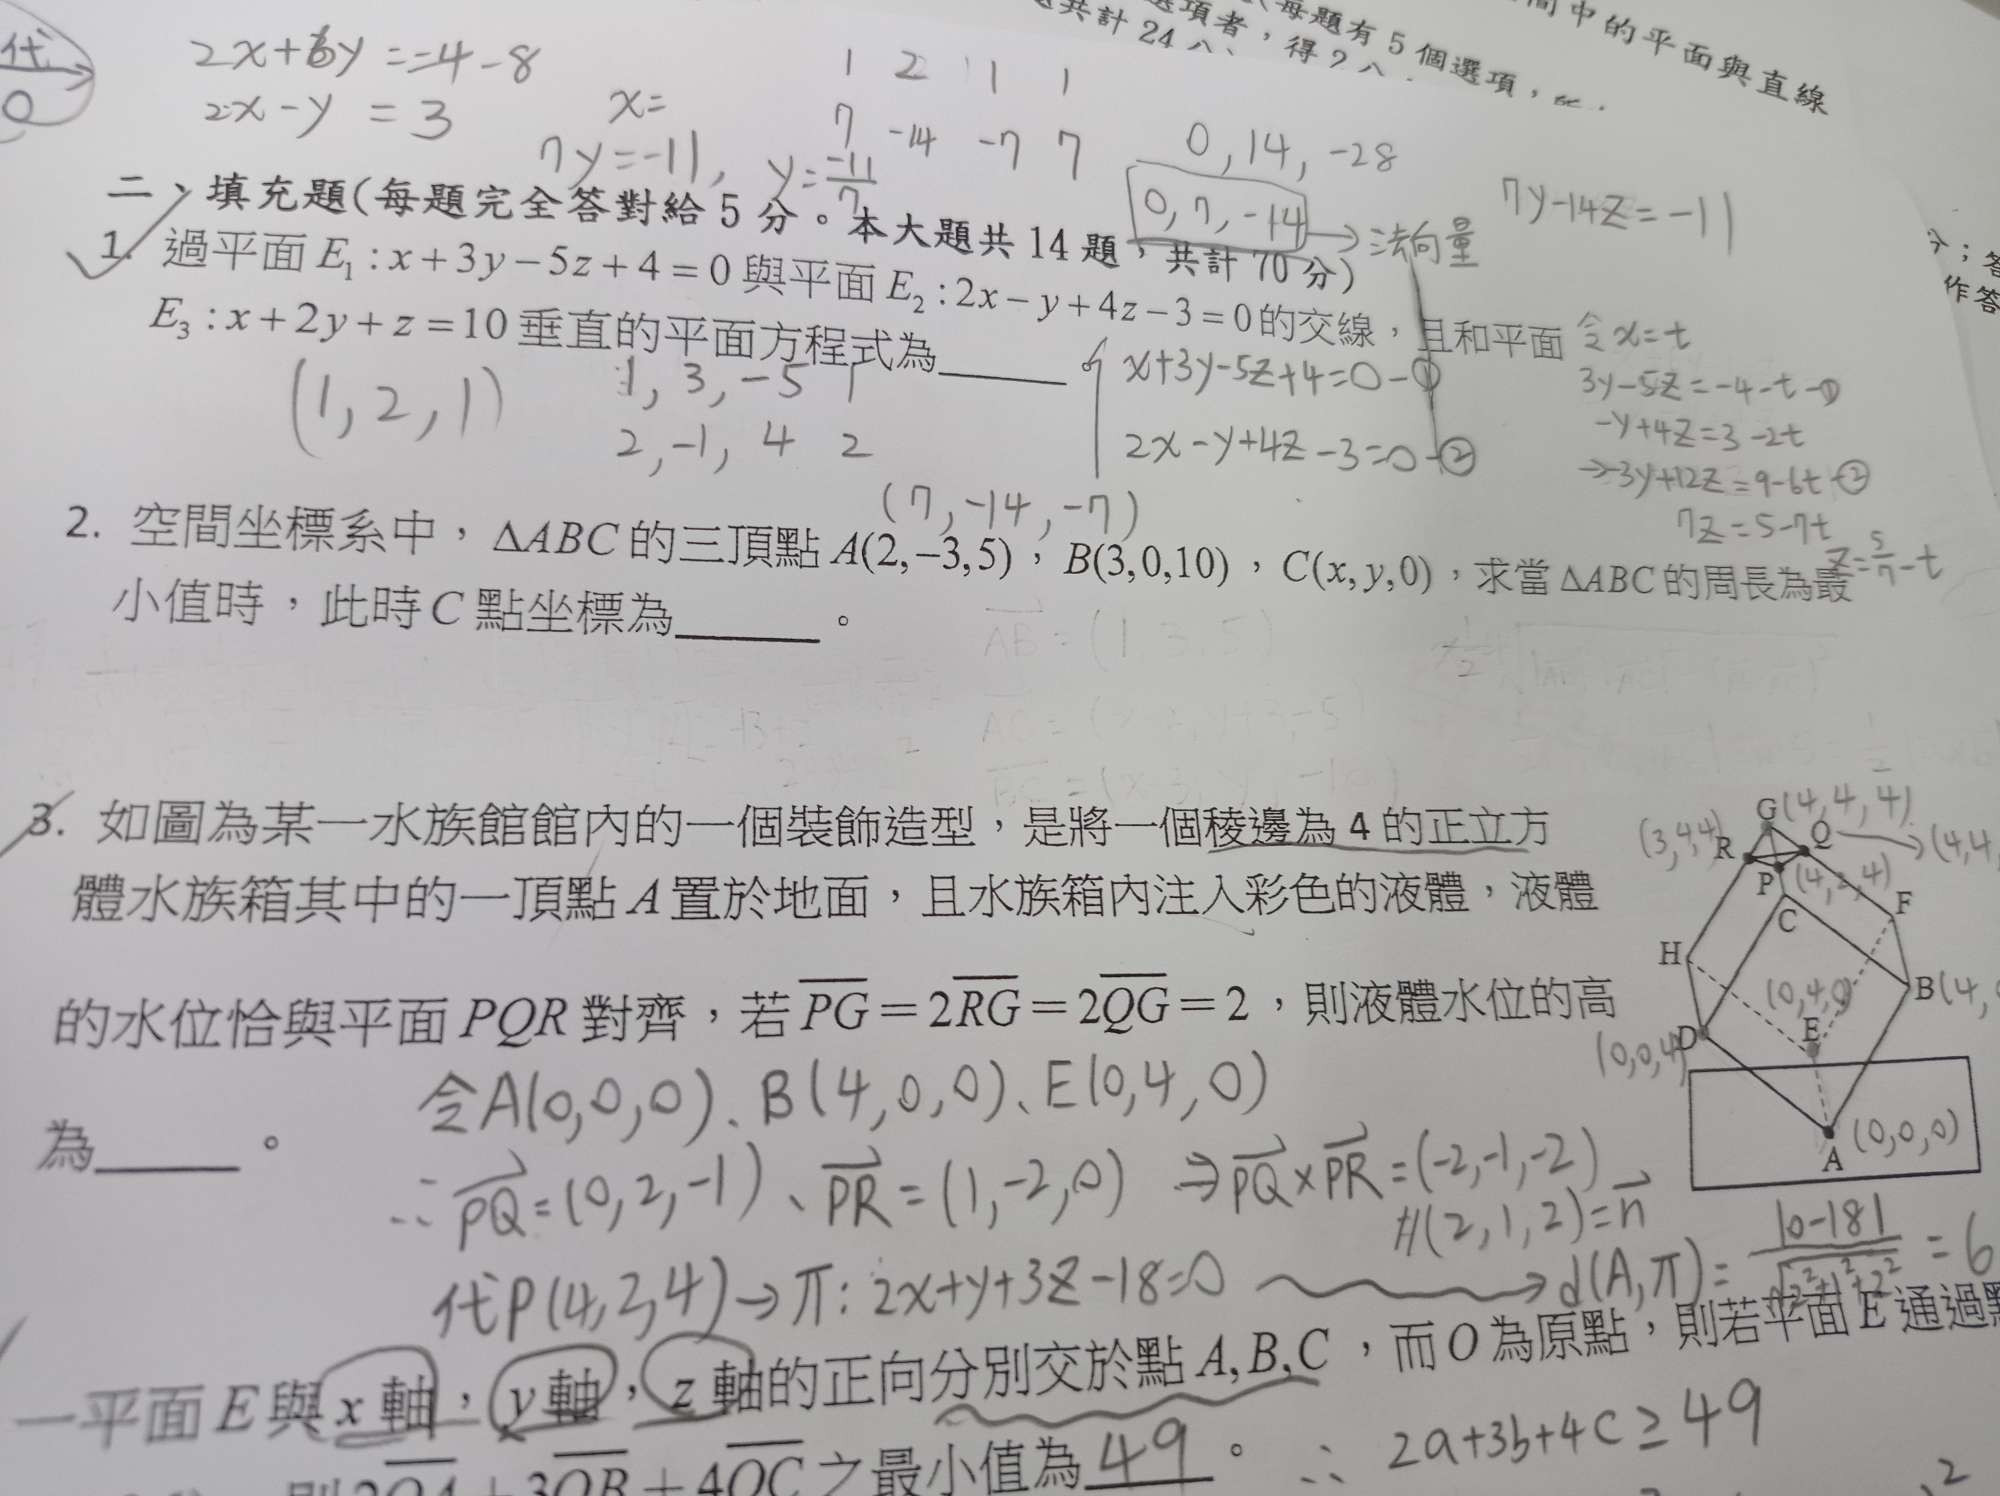 間中的平面與直線
(每題有5個選項,
選項者,得2
共計24
代
0
2x+6y=-4-8
2x-y=3
x=
7y=-11, y=-11/7
1 2 1 1
7 -14 -7 7
0,14,-28
0,7,-14 → 法向量
7y-14z=-11
二、填充題(每題完全答對給5分。本大題共14題,共計70分)
1. 過平面E₁:x+3y-5z+4=0與平面E₂:2x-y+4z-3=0的交線,且和平面
E₃:x+2y+z=10垂直的平面方程式為______。
(1,2,1)
1, 3, -5 1
2, -1, 4 2
(7,-14,-7)
x+3y-5z+4=0-①
2x-y+4z-3=0-②
令x=t
3y-5z=-4-t-①
-y+4z=3-2t
→-3y+12z=9-6t-②
7z=5-7t
z=5/7-t
分;答
作答
2. 空間坐標系中,ΔABC的三頂點A(2,-3,5),B(3,0,10),C(x,y,0),求當ΔABC的周長為最
小值時,此時C點坐標為______。
AB=(1,3,5)
3. 如圖為某一水族館館內的一個裝飾造型,是將一個稜邊為4的正立方
體水族箱其中的一頂點A置於地面,且水族箱內注入彩色的液體,液體
的水位恰與平面PQR對齊,若PG=2RG=2QG=2,則液體水位的高
為______。
G(4,4,4)
(3,4,4) R
Q → (4,4,
P (4,2,4)
C
F
H
(0,4,0)
B(4,
E
(0,0,4) D
A (0,0,0)
令A(0,0,0)、B(4,0,0)、E(0,4,0)
∴PQ=(0,2,-1)、PR=(1,-2,0) ⇒PQ×PR=(-2,-1,-2)
//(2,1,2)=n
代P(4,2,4)→π:2x+y+3z-18=0 → d(A,π)=|0-18|/√2²+1²+2²=6
一平面E與x軸,y軸,z軸的正向分別交於點A,B,C,而O為原點,則若平面E通過點
則2OA+3OB+4OC之最小值為49。
∴ 2a+3b+4c≥49